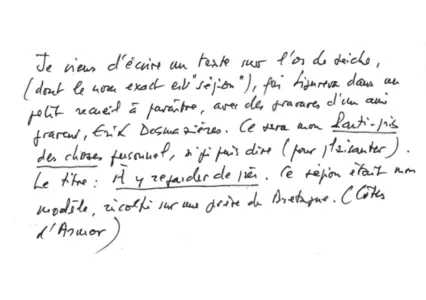 Je viens d'écrire un texte sur l'os de seiche,
(dont le nom exact est "sépion"), qui figurera dans un
petit recueil à paraître, avec des gravures d'un ami
graveur, Erik Desmazières. Ce sera mon Parti-pris
des choses personnel, si je puis dire (pour plaisanter).
Le titre : Il y regarder de près. Ce sépion était mon
modèle, récolté sur une grève de Bretagne. (Côtes
d'Armor)